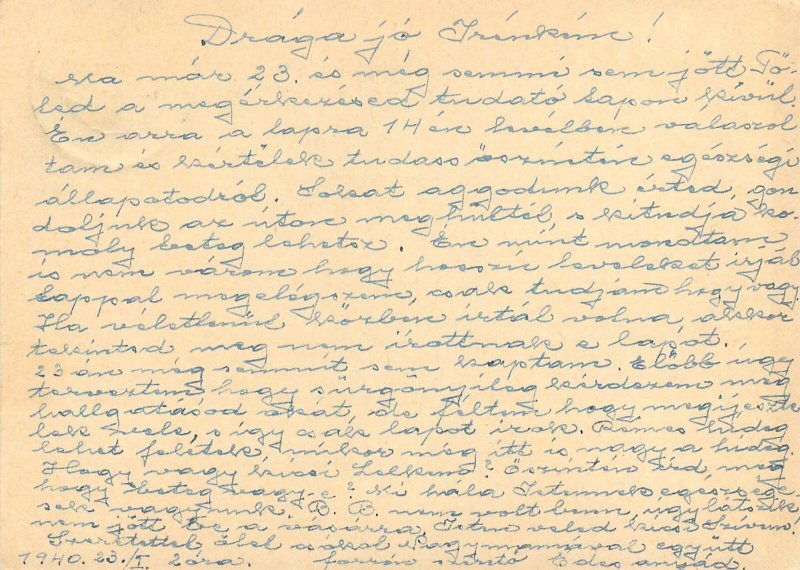 Drága jó Irénkém!
Ma már 23. és még semmi sem jött Tő-
led a megérkezésed tudató lapon kívül.
Én arra a lapra 14én levélben valaszol
tam és kértelek tudass őszintén egészségi
állapotodról. Sokat aggodunk érted, gon
doljuk az úton meghültél s kitudja ko-
moly beteg lehetsz. Én mint mondtam
is nem várom hogy hosszú leveleket irjál
lappal megelégszem, csak tudjam hogy vagy
Ha véletlenül közben írtál volna akkor
tekintsd meg nem írottnak e lapot.
23 án még semmit sem kaptam. Előbb úgy
terveztem hogy sürgönyileg kérdezem meg
hallgatásod okát, de féltem hogy megijeszte
lek vele, s így csak lapot irok. Rémes hideg
lehet felétek, mikor még itt is nagy a hideg.
Hogy vagy kicsi Lelkem? Őszintén ird meg
hogy beteg vagy-e? Mi hála Istennek egészsége
sek vagyunk. B. B. nem volt benn, ugylátszik
nem jött be a vásárra, Isten veled kicsi Szivem!
Szeretettel ölel csókol Nagymamával együtt
1940. 23./I. 2 óra. forrón szerető Édes anyád.